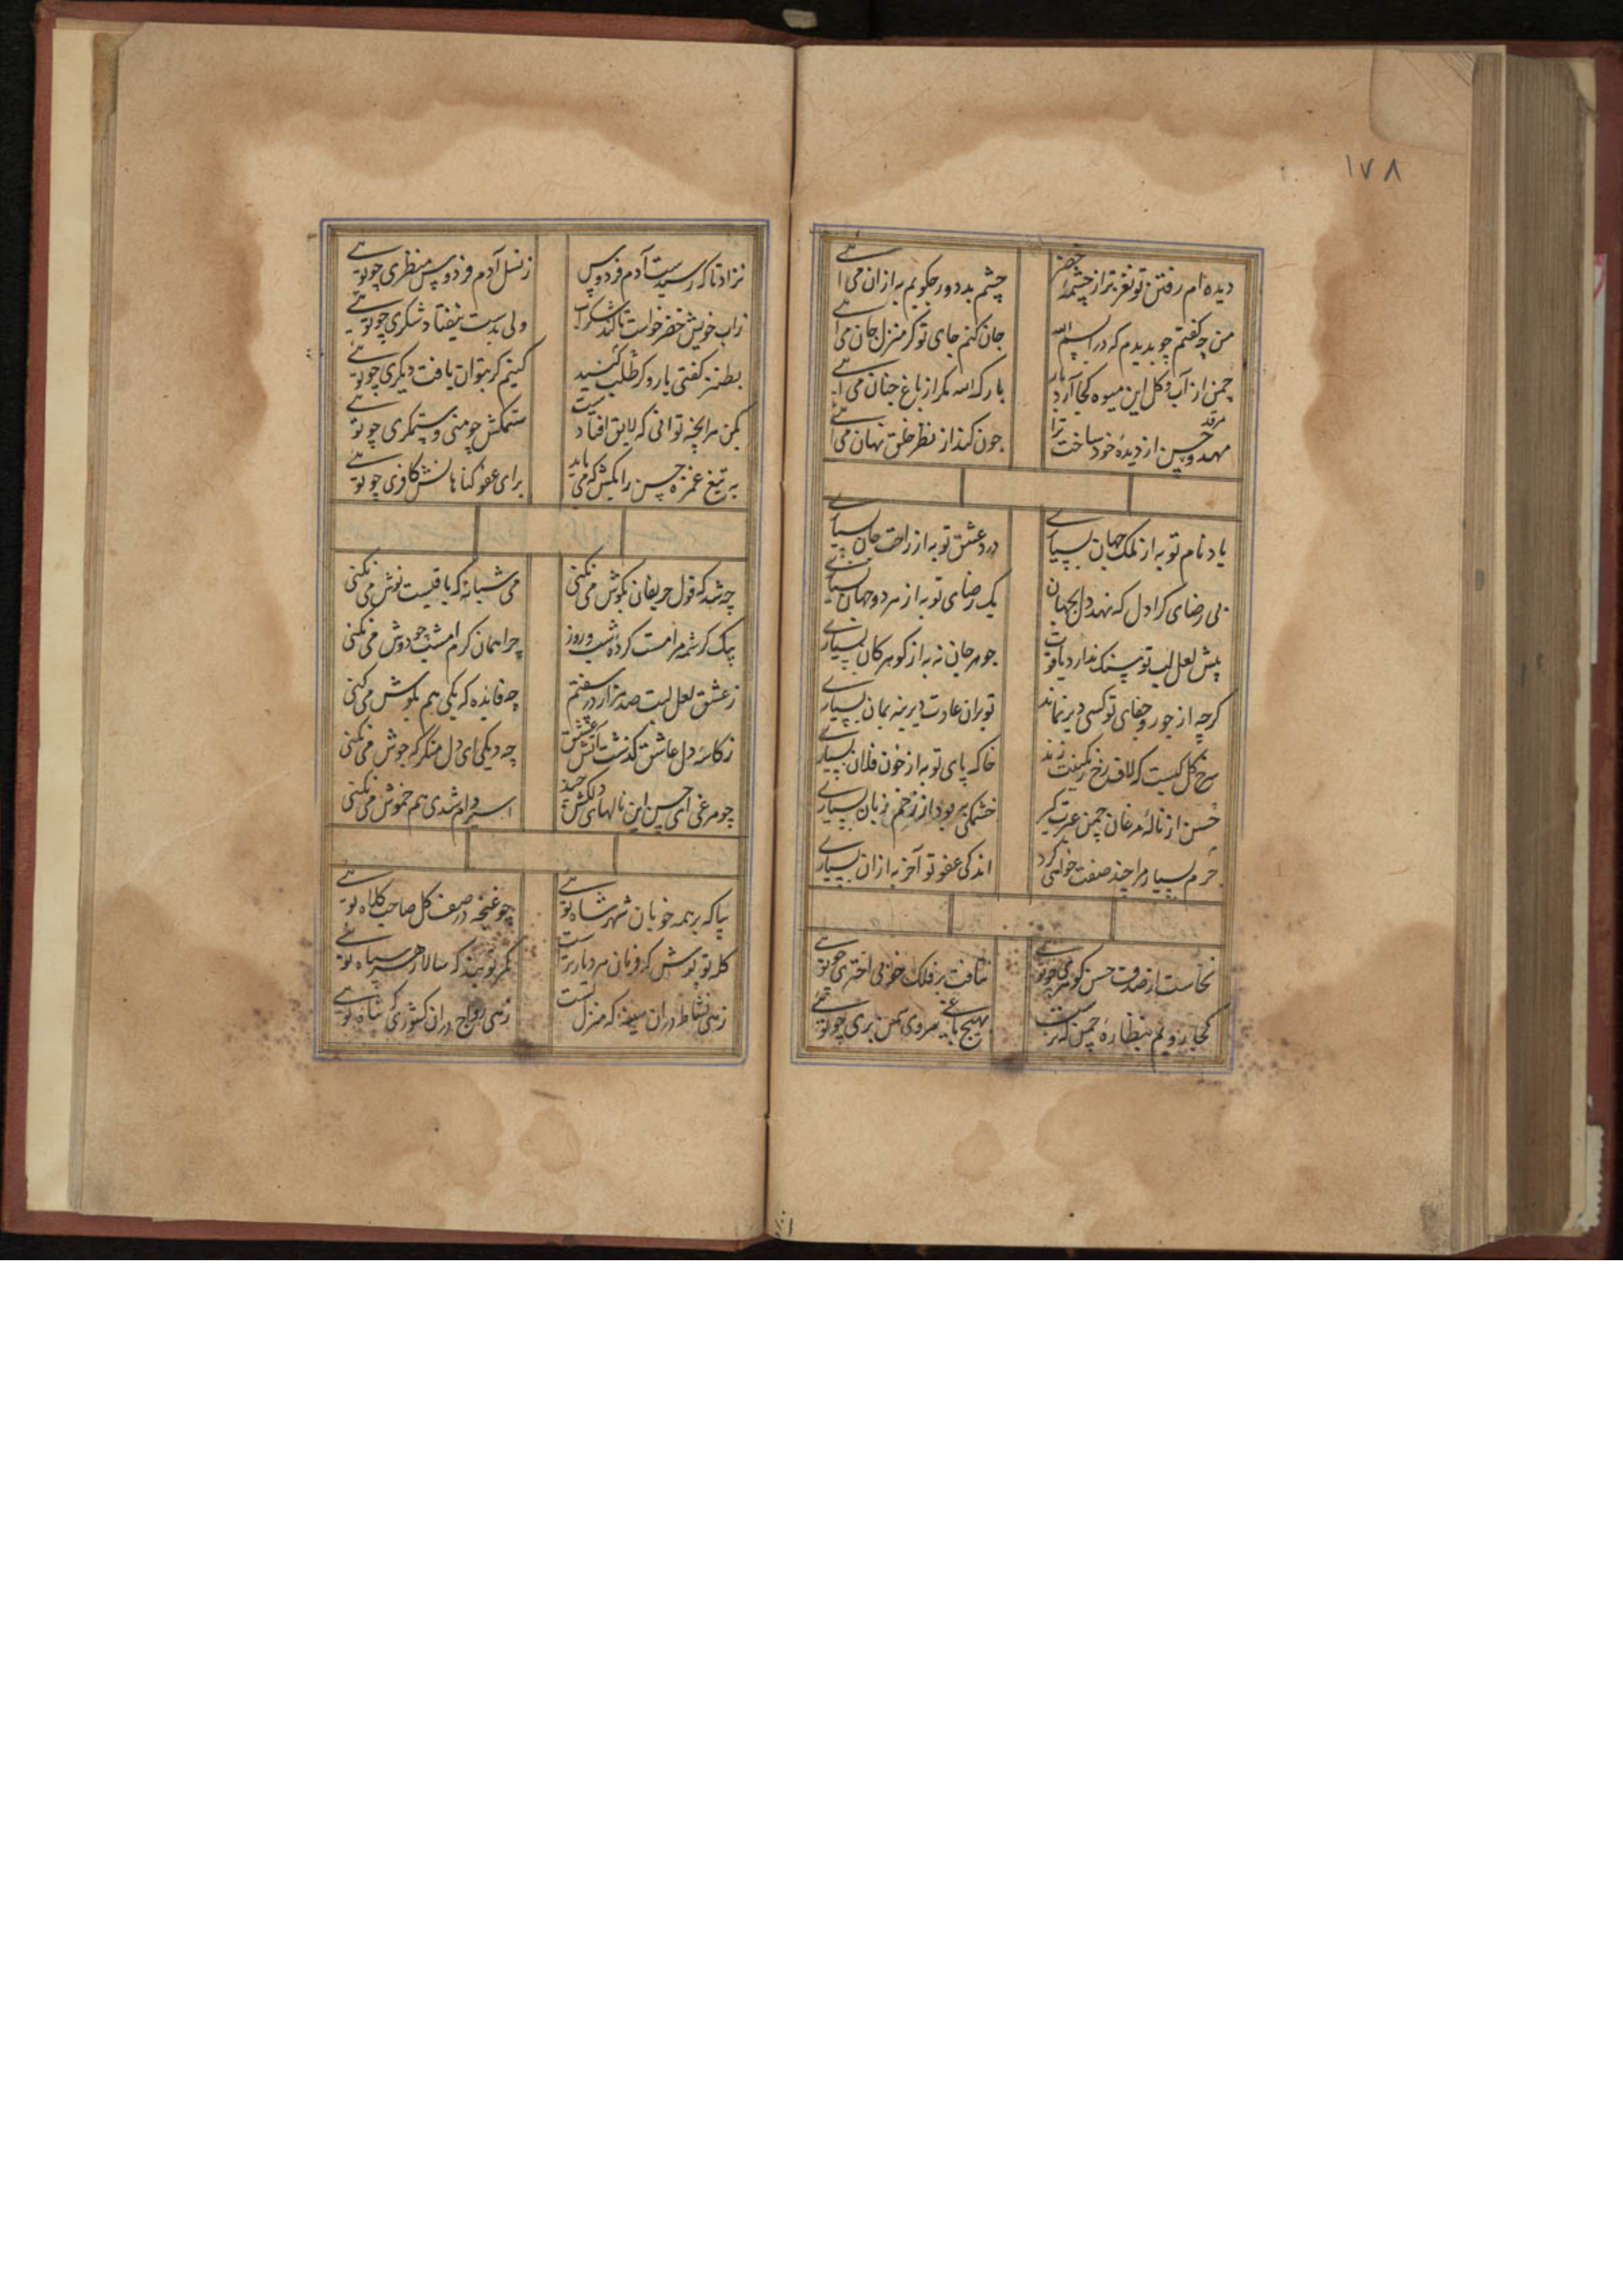 ۱۷۸
دیده ام رفتن تو نغزتر از چشمهٔ خضر چشم بد دور چکویم به ازان می آئی
من چه کفتم چو بدیدم که در اسپم الله جان کنم جای تو کر منزل جان می آئی
چمن از آب و کل این میوه کجا آرد بار بارک الله مکر از باغ جنان می آئی
مهد و مرقد حسن از دیدهٔ خود ساخت ترا چون کند از نظر خلق نهان می آئی
یاد نام تو به از ملک جهان بسیاری درد عشق تو به از راحت جان بسیاری
بی رضای کرا دل که نهد دل بجهان یک رضای تو به از هر دو جهان بسیاری
پیش لعل لب تو سنک ندارد یاقوت جوهر جان نه به از کوهر کان بسیاری
کرچه از جور و جفای تو کسی دیر نماند تو بران عادت دیرینه بمان بسیاری
سرخ کل کیست که لاف رخ رنکینت زند خاک پای تو به از خون فلان بسیاری
حسن از نالهٔ مرغان چمن عبرت کیر خشمکی به بود از زخم زبان بسیاری
جرم بسیار مرا چند صفت خواهی کرد اندکی عفو تو آخر به ازان بسیاری
نخاست از صدف حسن کوهری چو توئی نتافت بر فلک خوبی اختری چو توئی
کجا رویم بنظارهٔ چمن که نرست بهیچ باغی سروی سمن بری چو توئی
نزاد تا که رسیدست آدم فردوس ز نسل آدم فردوس منظری چو توئی
زاب خویش خضر خواست تا کند شکراب ولی بدست نیفتاد شکری چو توئی
بطنز کفتی یارو کر طلب کنید کنیم کر بتوان یافت دیکری چو توئی
بکن هرانچه توانی که لایق افتادست ستمکش چو منی و ستمکری چو توئی
به تیغ غمزه حسن را بکش که می باید برای عفو کناهانش کافری چو توئی
چه شد که قول حریفان بکوش می نکنی می شبانه که باقیست نوش می نکنی
بیک کرشمه مرا مست کردهٔ شب و روز چرا همان کرم امشب چو دوش می نکنی
ز عشق لعل لبت صد هزار در سفتم چه فایده که یکی هم بکوش می نکنی
ز کاسهٔ دل عاشق کذشت آتش عشق چه دیکی ای دل منکر که جوش می نکنی
چو مرغی ای حسن این نالهای دلکش چند اسیر دام شدی هم خموش می نکنی
بیا که بر همه خوبان شهر شاه توئی چو غنچه در صف کل صاحب کلاه توئی
کله تو پوش که فرمان هر دیار تراست کمر تو بند که سالار هر سپاه توئی
زهی نشاط دران سینه که منزل تست زهی رواج دران کشوری که شاه توئی